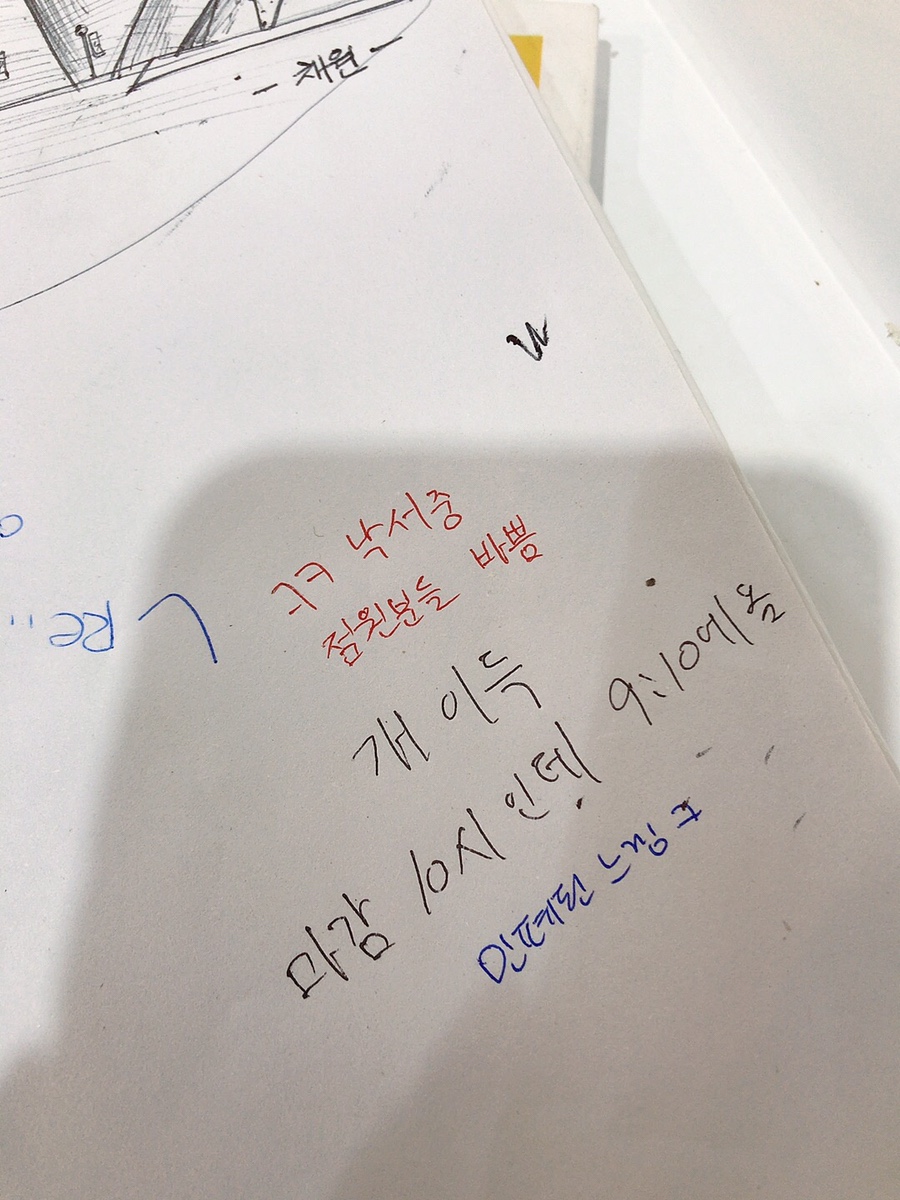 - 채원 -
ㅋㅋ 낙서중
점원분들 바쁨
개 이득
마감 10시 인데 9:10에 옴
민폐된 느낌 ㅋ
Re..